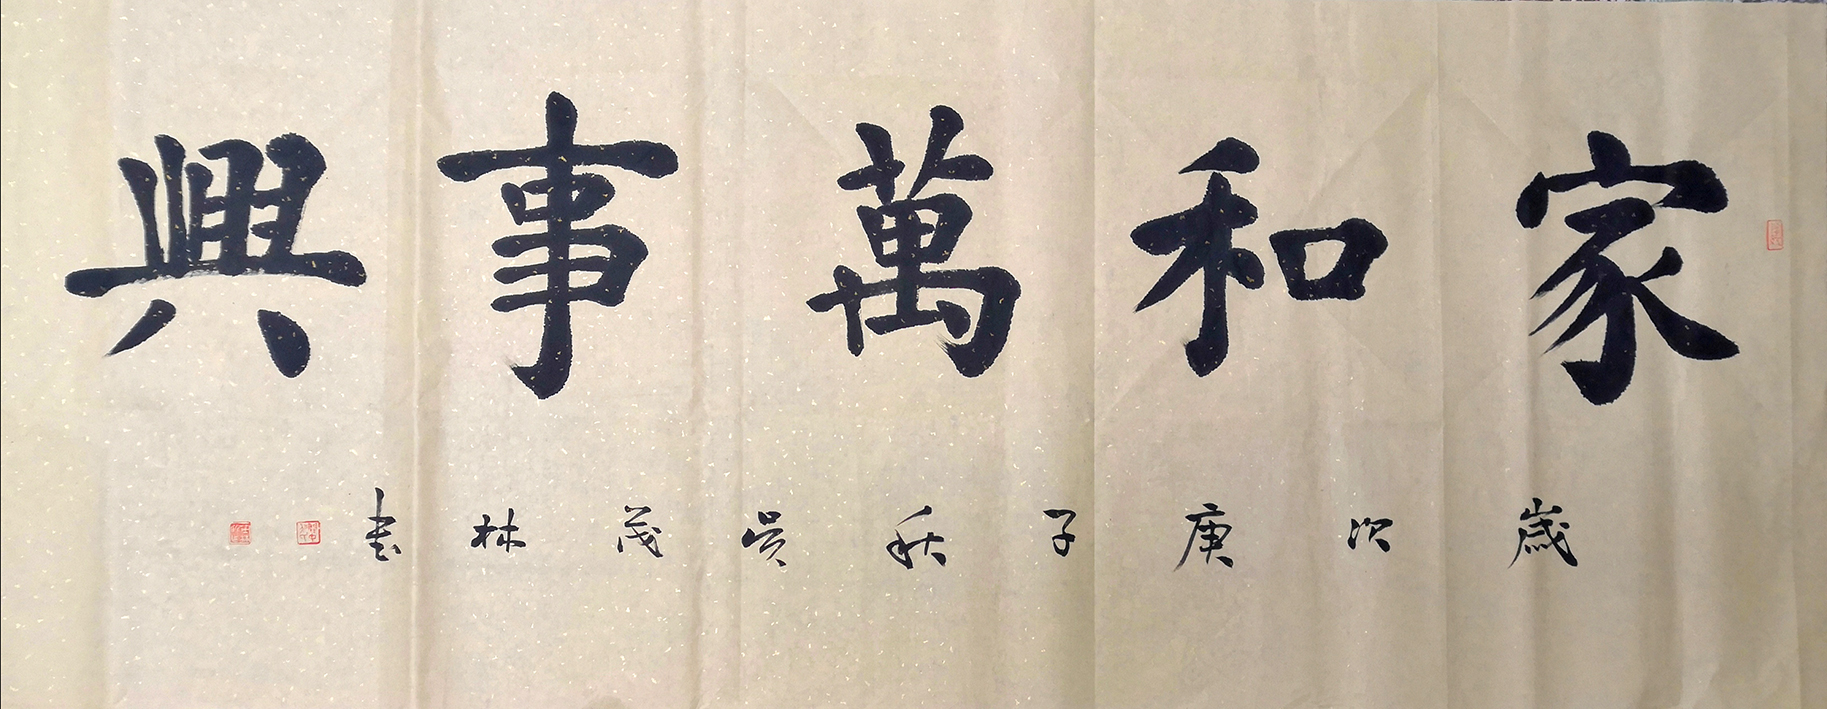 家和萬事興
歲次庚子秋吳茂林書